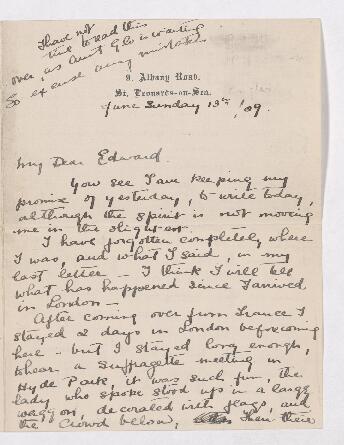 I have not
time to read this
over, as Aunt Glo is waiting
So excuse any mistakes
9, Albany Road.
St. Leonards-on-Sea.
June Sunday 13th /09.
My Dear Edward.
You see I am keeping my
promise of yesterday, to write today,
although the spirit is not moving
me in the slightest.
I have forgotten completely where
I was, and what I said, in my
last letter — I think I will tell
what has happened since I arrived
in London —
After coming over from France I
stayed 2 days in London before coming
here - but I stayed long enough,
to hear a suffragette meeting in
Hyde Park, it was such fun the
lady who spoke stood up in a large
waggon, decorated with flags, and
the crowd below, Then there